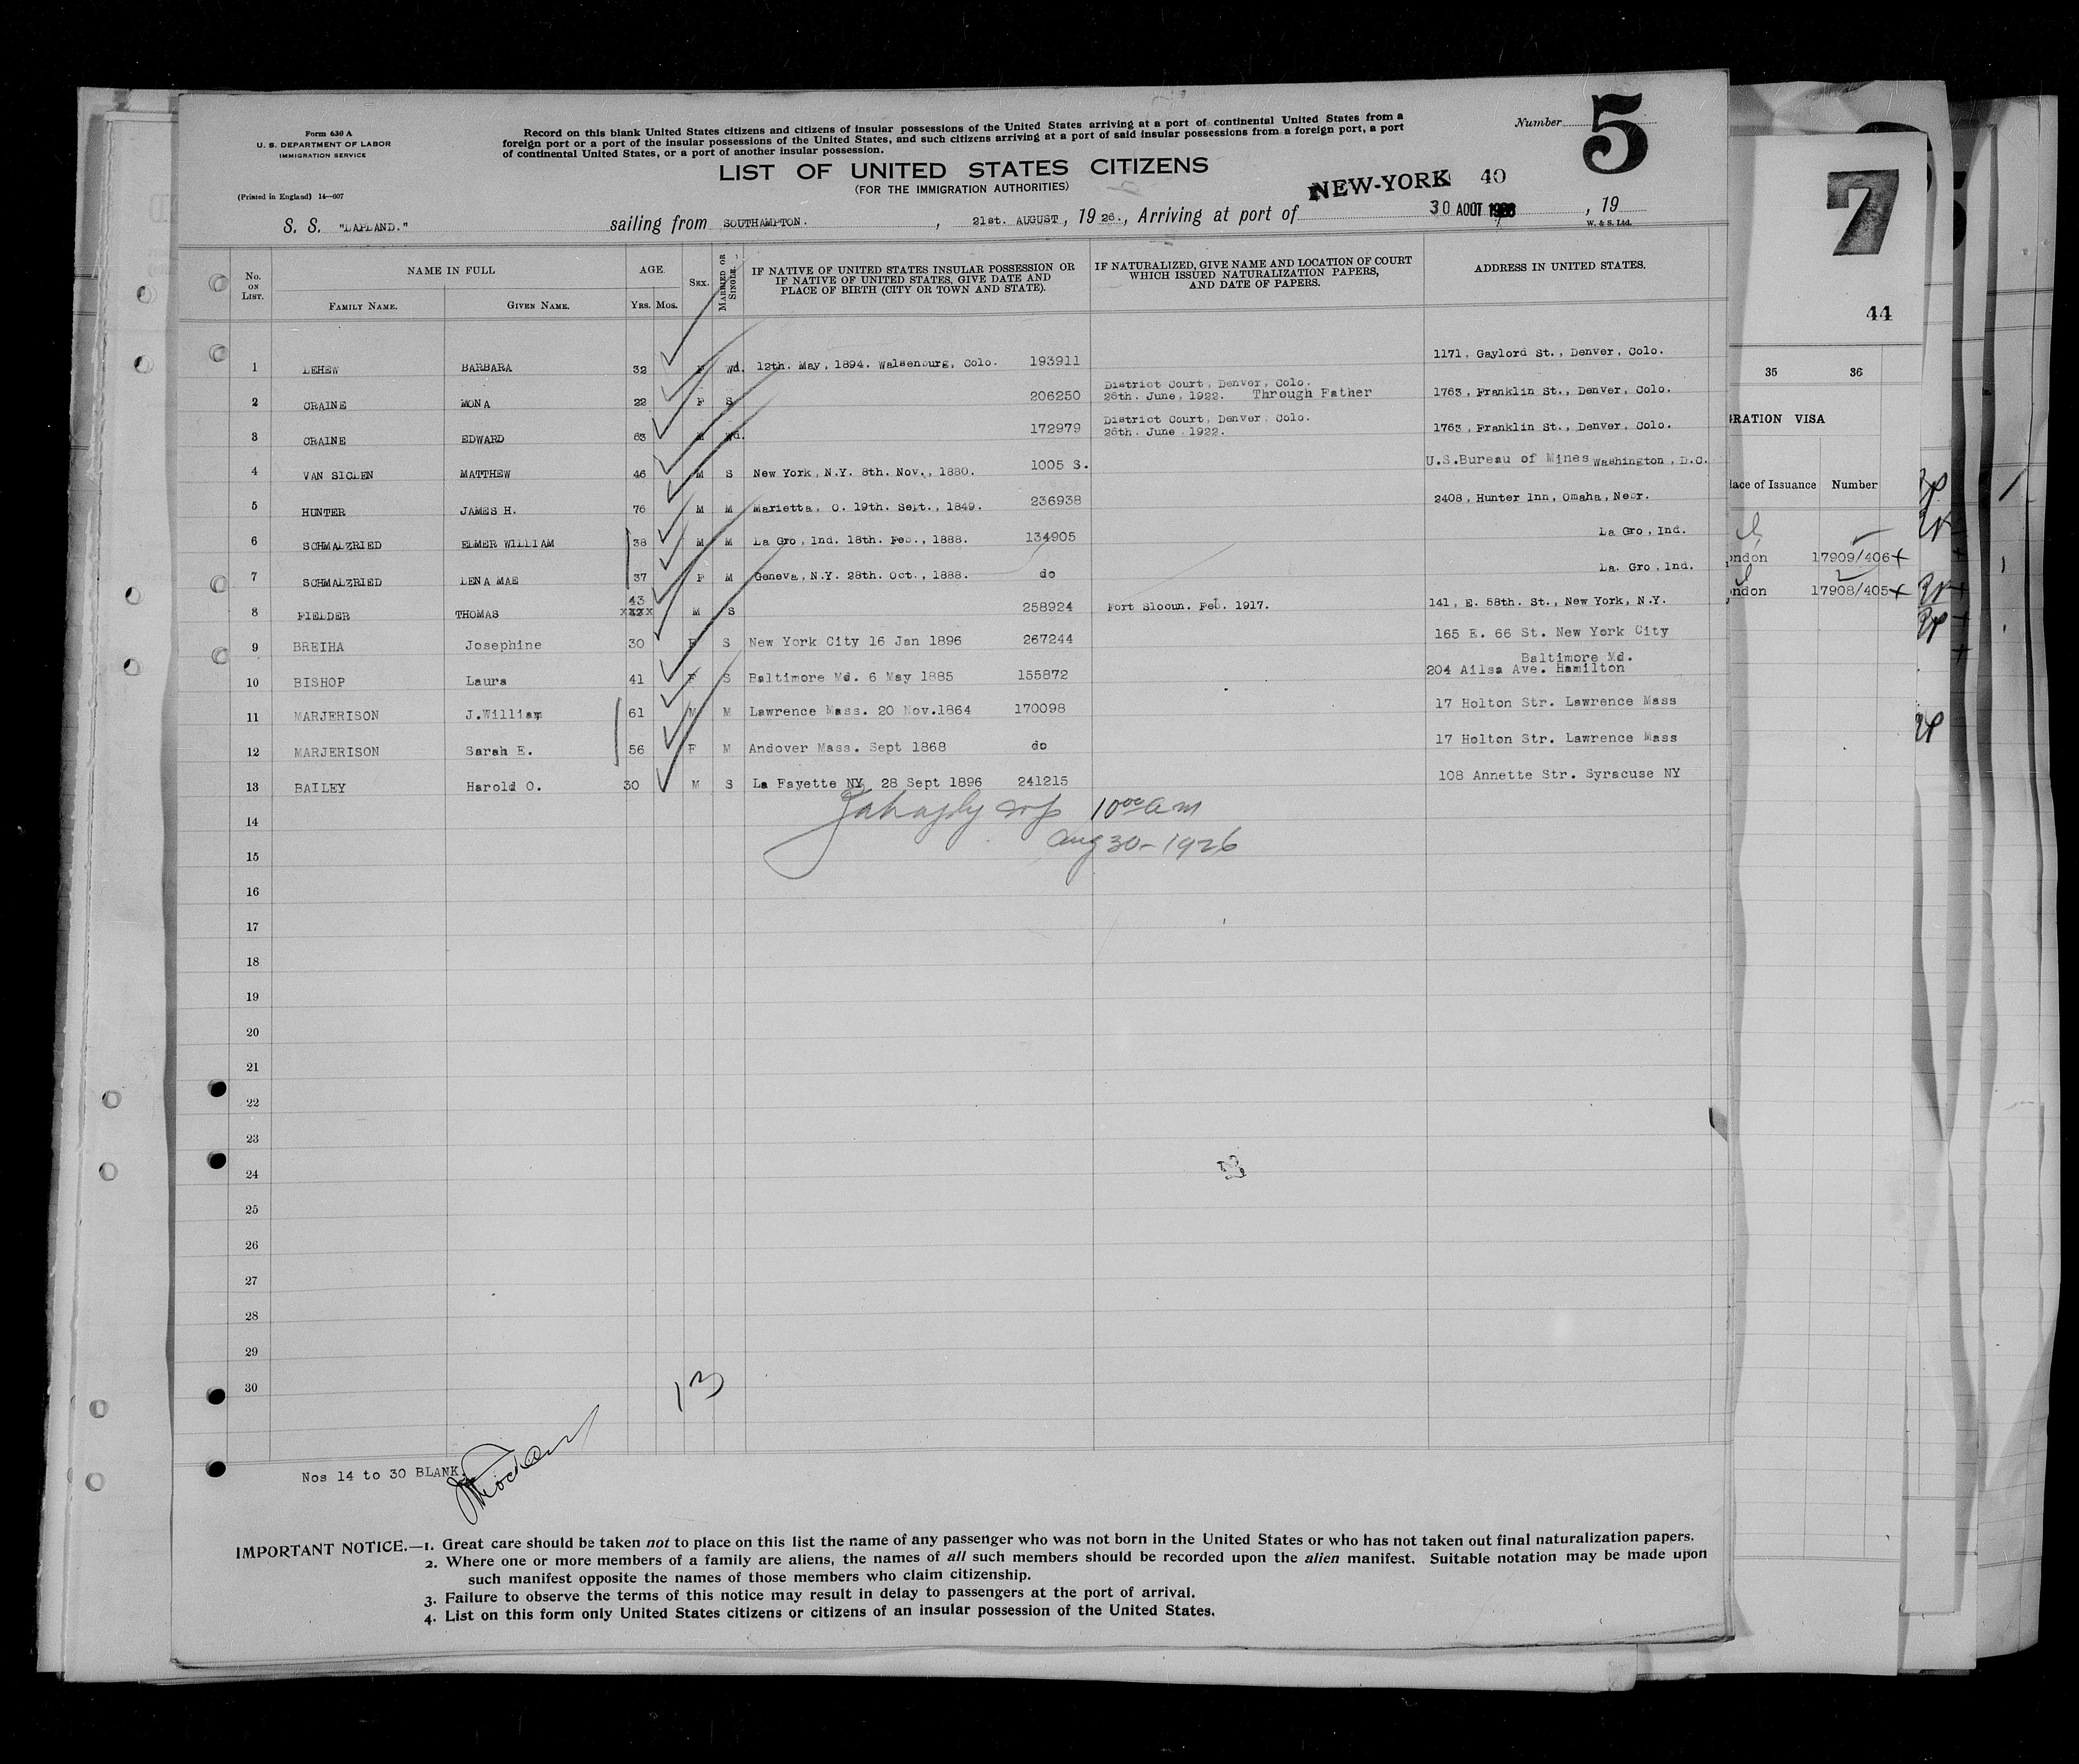 Form 630 A
U. S. DEPARTMENT OF LABOR
IMMIGRATION SERVICE
(Printed in England) 14—607
Record on this blank United States citizens and citizens of insular possessions of the United States arriving at a port of continental United States from a
foreign port or a port of the insular possessions of the United States, and such citizens arriving at a port of said insular possessions from a foreign port, a port
of continental United States, or a port of another insular possession.
Number 5
LIST OF UNITED STATES CITIZENS
(FOR THE IMMIGRATION AUTHORITIES)
NEW-YORK 40
S. S. "LAPLAND." sailing from SOUTHAMPTON. , 21st. AUGUST, 1926., Arriving at port of 30 AOUT , 19
W. & S. Ltd.
No. ON LIST. NAME IN FULL AGE. SEX. MARRIED OR SINGLE. IF NATIVE OF UNITED STATES INSULAR POSSESSION OR IF NATIVE OF UNITED STATES, GIVE DATE AND PLACE OF BIRTH (CITY OR TOWN AND STATE). IF NATURALIZED, GIVE NAME AND LOCATION OF COURT WHICH ISSUED NATURALIZATION PAPERS, AND DATE OF PAPERS. ADDRESS IN UNITED STATES.
FAMILY NAME. GIVEN NAME. YRS. MOS.
1 LEHEW BARBARA 32 F Wd. 12th. May, 1894. Walsenburg, Colo. 193911 1171, Gaylord St., Denver, Colo.
2 CRAINE MONA 22 F S 206250 District Court, Denver, Colo. 26th. June, 1922. Through Father 1763, Franklin St., Denver, Colo.
3 CRAINE EDWARD 63 M Wd. 172979 District Court, Denver, Colo. 26th. June, 1922. 1763, Franklin St., Denver, Colo.
4 VAN SICLEN MATTHEW 46 M S New York, N.Y. 8th. Nov., 1880. 1005 S. U.S.Bureau of Mines Washington, D.C.
5 HUNTER JAMES H. 76 M M Marietta, O. 19th. Sept., 1849. 236938 2408, Hunter Inn, Omaha, Nebr.
6 SCHMALZRIED ELMER WILLIAM 38 M M La Gro, Ind. 18th. Feb., 1888. 134905 La Gro, Ind.
7 SCHMALZRIED LENA MAE 37 F M Geneva, N.Y. 28th. Oct., 1888. do La. Gro, Ind.
8 FIELDER THOMAS 43 M S 258924 Fort Slocun. Feb. 1917. 141, E. 58th. St., New York, N.Y.
9 BREIHA Josephine 30 F S New York City 16 Jan 1896 267244 165 E. 66 St. New York City
10 BISHOP Laura 41 F S Baltimore Md. 6 May 1885 155872 Baltimore Md. 204 Ailsa Ave. Hamilton
11 MARJERISON J.William 61 M M Lawrence Mass. 20 Nov.1864 170098 17 Holton Str. Lawrence Mass
12 MARJERISON Sarah E. 56 F M Andover Mass. Sept 1868 do 17 Holton Str. Lawrence Mass
13 BAILEY Harold O. 30 M S La Fayette NY 28 Sept 1896 241215 108 Annette Str. Syracuse NY
14 10 00 am
15 Aug 30-1926
16
17
18
19
20
21
22
23
24
25
26
27
28
29
30
13
Nos 14 to 30 BLANK.
IMPORTANT NOTICE.—1. Great care should be taken not to place on this list the name of any passenger who was not born in the United States or who has not taken out final naturalization papers.
2. Where one or more members of a family are aliens, the names of all such members should be recorded upon the alien manifest. Suitable notation may be made upon
such manifest opposite the names of those members who claim citizenship.
3. Failure to observe the terms of this notice may result in delay to passengers at the port of arrival.
4. List on this form only United States citizens or citizens of an insular possession of the United States.
7
44
35 36
VISA
of Issuance Number
17909/406
17908/405